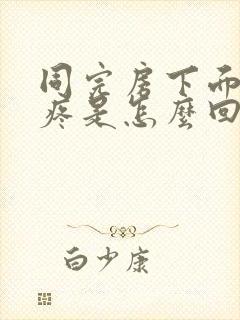 同完房下面
疼是怎麼回
白少康